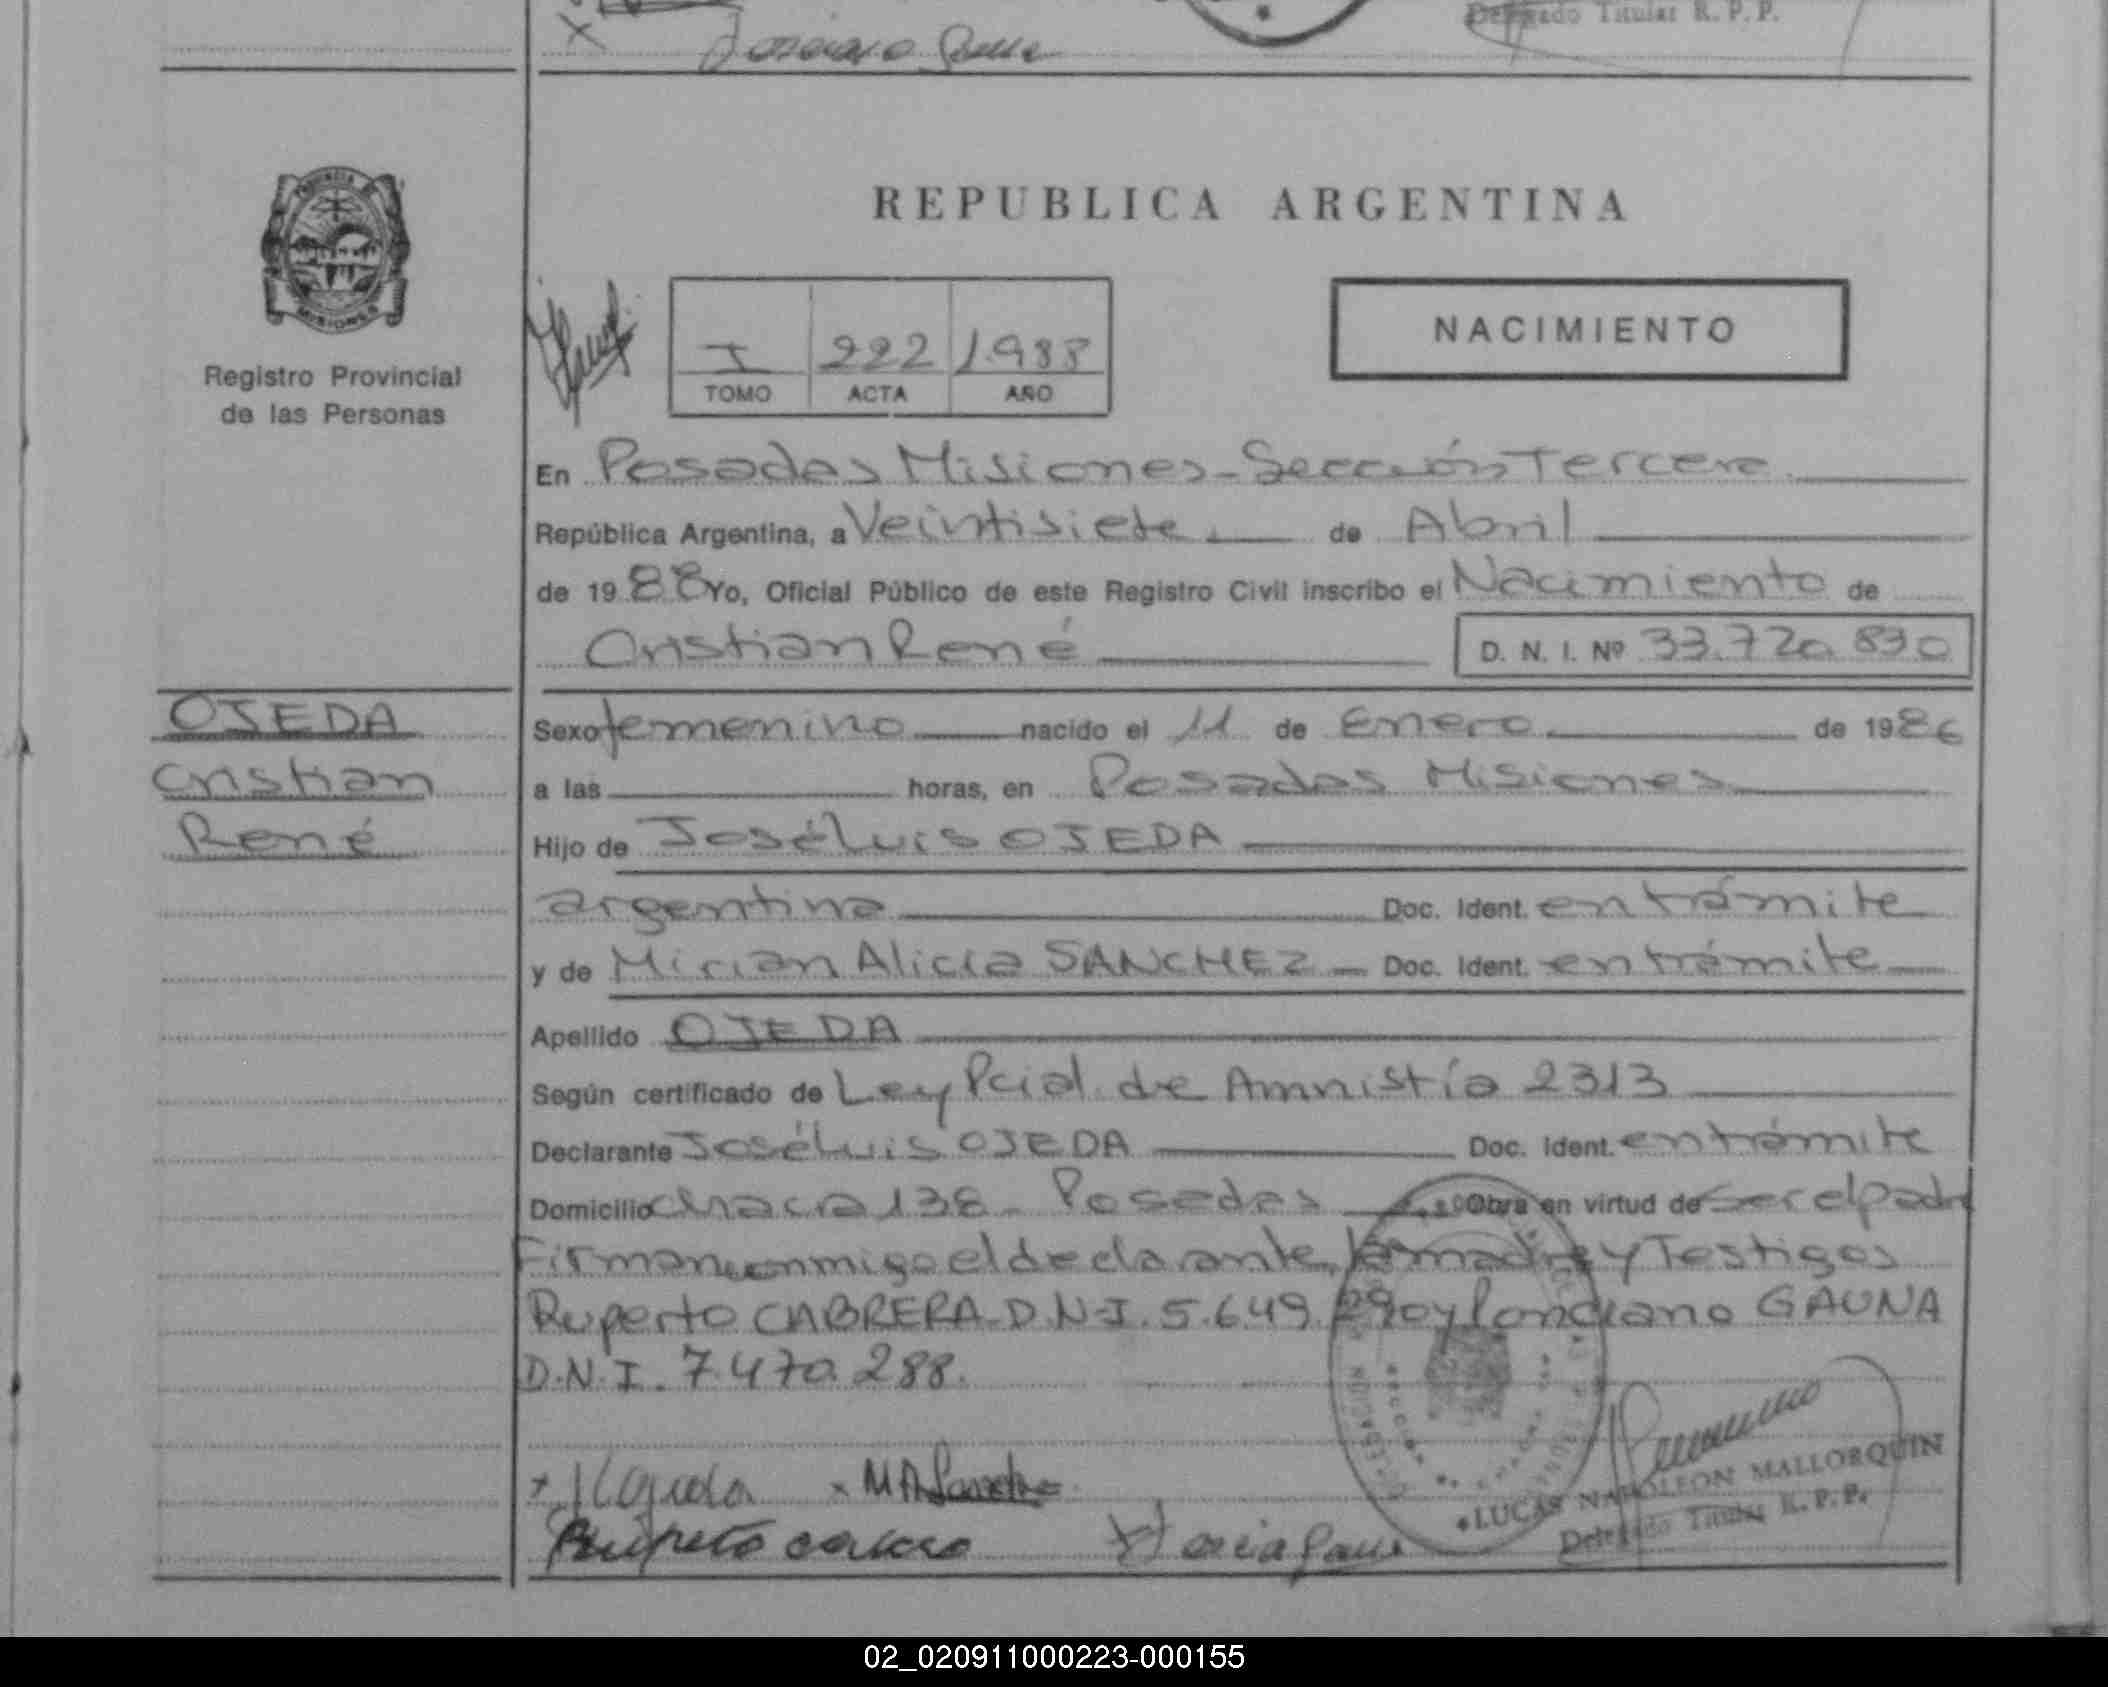 Delegado Titular R. P. P.
PROVINCIA DE
MISIONES
Registro Provincial
de las Personas
REPUBLICA ARGENTINA
I 222 1.988
TOMO ACTA AÑO
NACIMIENTO
En Posadas Misiones - Sección Tercera
República Argentina, a Veintisiete de Abril
de 1988 Yo, Oficial Público de este Registro Civil inscribo el Nacimiento de
Cristian René D. N. I. Nº 33.720.830
OJEDA
Cristian
René
Sexo femenino nacido el 11 de Enero de 1986
a las horas, en Posadas Misiones
Hijo de José Luis OJEDA
argentina Doc. Ident. en trámite
y de Mirian Alicia SANCHEZ - Doc. Ident. en trámite
Apellido OJEDA
Según certificado de Ley Pcial. de Amnistía 2313
Declarante José Luis OJEDA Doc. Ident. en trámite
Domicilio Chacra 138 - Posadas Obra en virtud de ser el padre
Firman conmigo el declarante, la madre y Testigos
Ruperto CABRERA - D.N.I. 5.649.290 y Ponciano GAUNA
D.N.I. 7.470.288.
LUCAS NAPOLEON MALLORQUIN
Delegado Titular R. P. P.
02_020911000223-000155